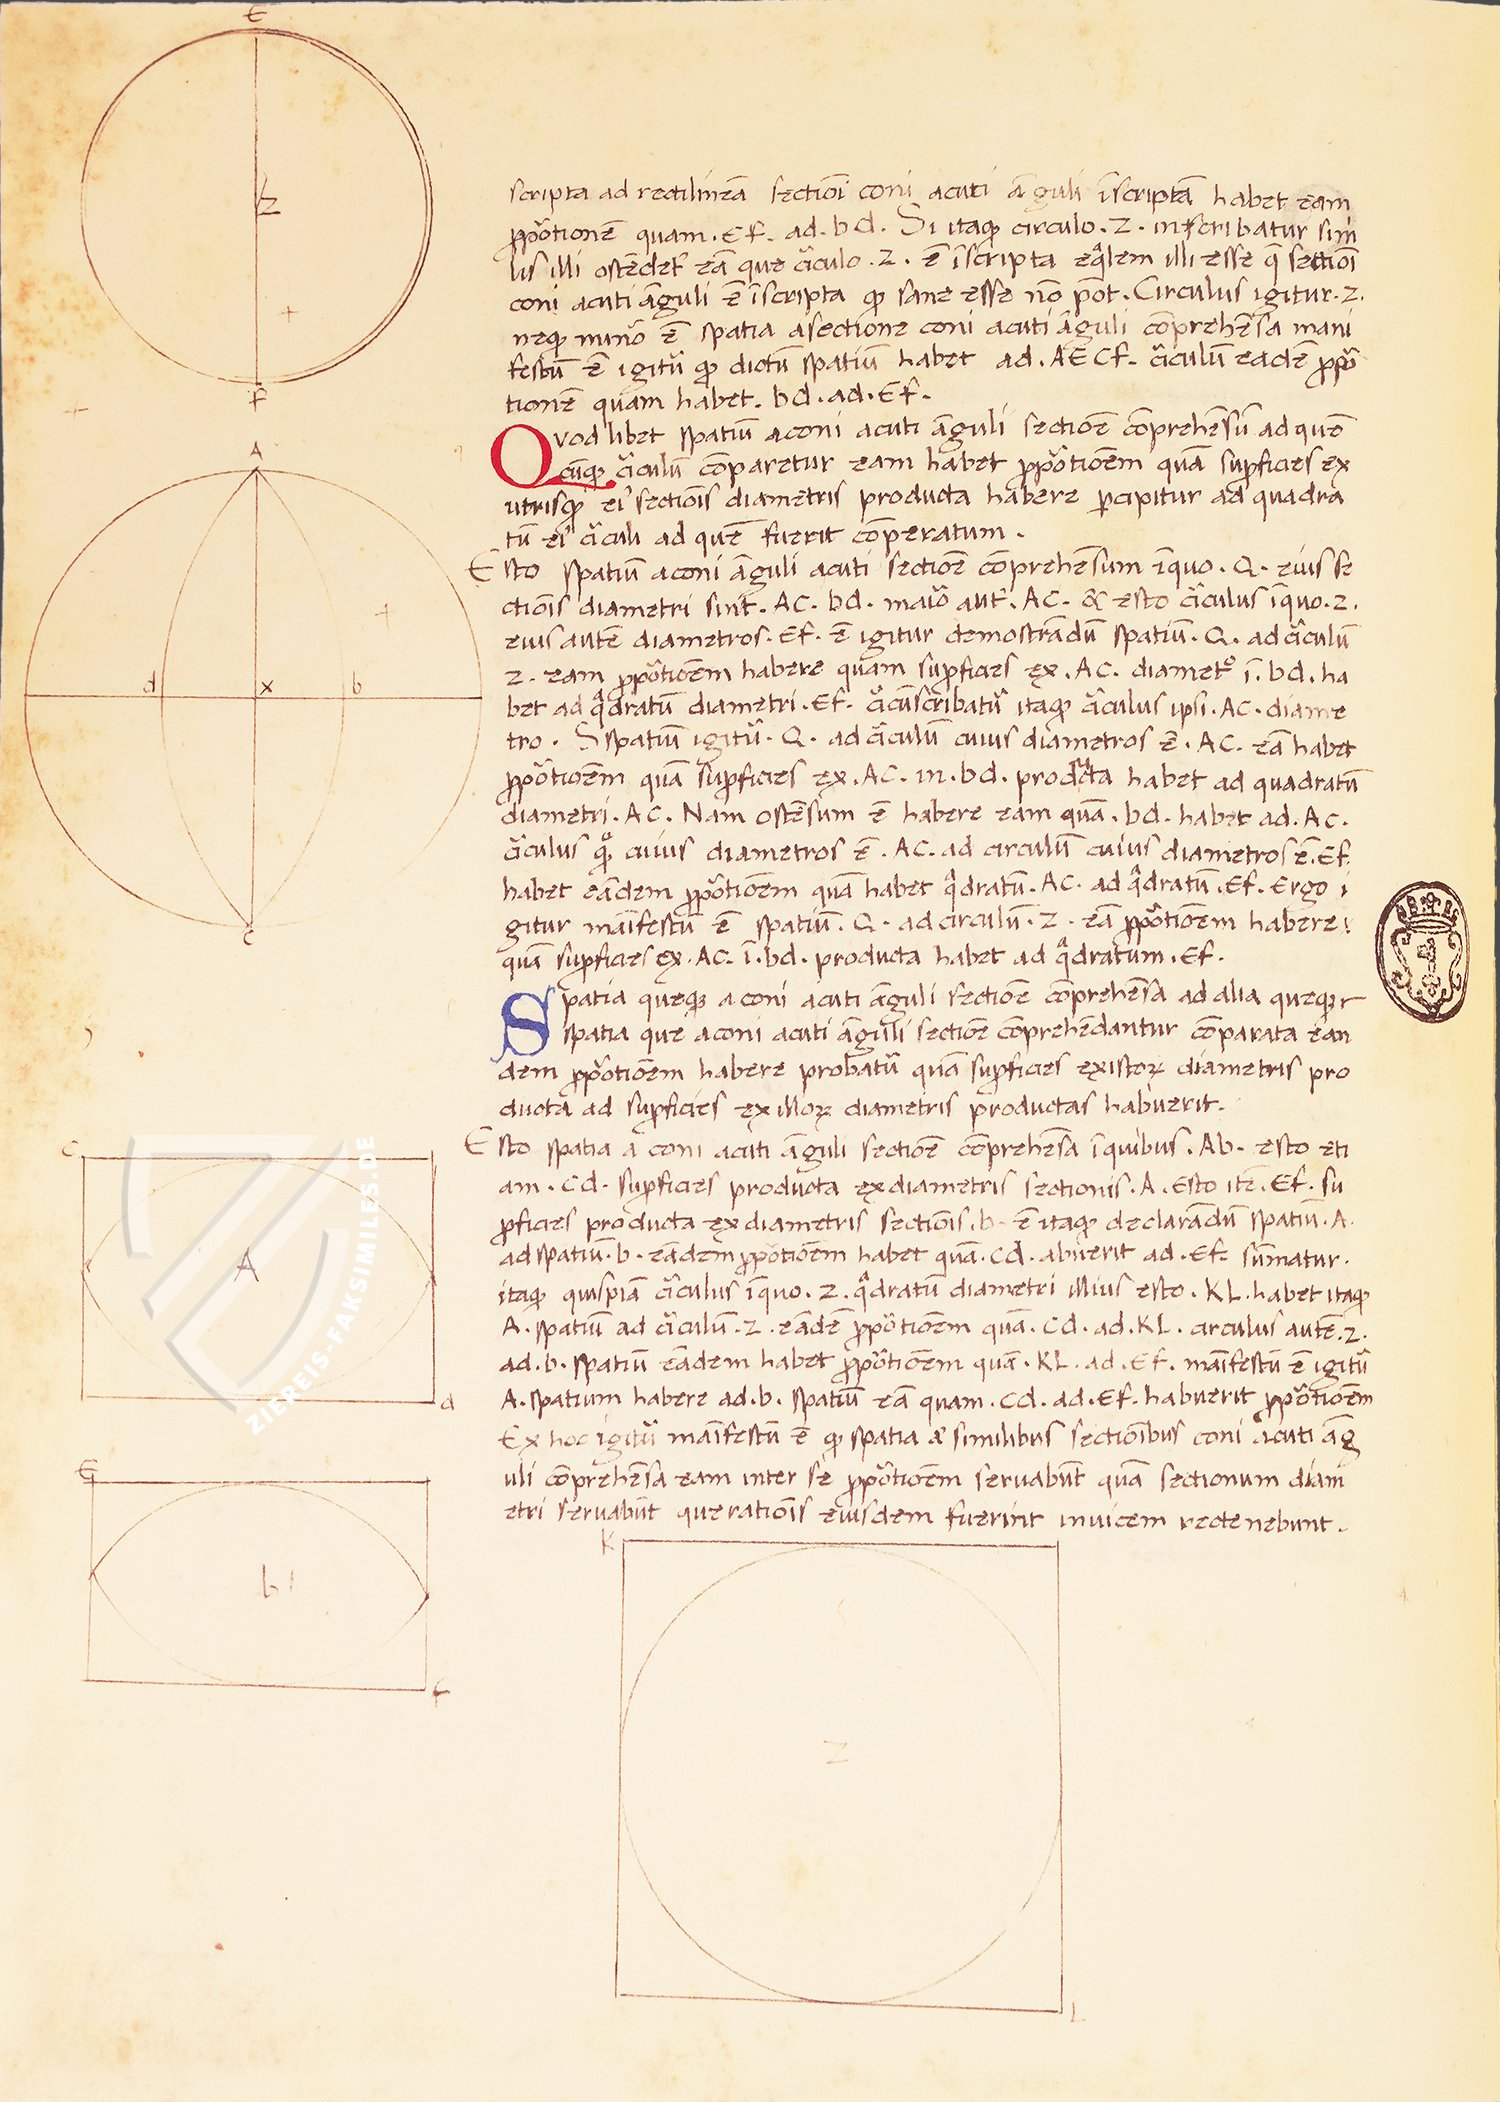 E
Z
F
A
d x b
C
scripta ad rectilineā sectiōi coni acuti āguli īscriptā habet eam
ꝓpōtionē quam . Ef . ad . bd . Si itaqꝫ circulo . Z . inscribatur simi
lis illi ostēdet᷑ eā que cīculo . Z . ē īscripta eq̄lem illi esse q̄ sectiōi
coni acuti āguli ē īscripta qꝫ sane esse nō pōt . Circulus igitur . Z .
neqꝫ minō ē spatia asectione coni acuti āguli cōprehēsa mani
festū ē igitū qꝫ dictū spatiū habet ad . AECf . cīculū eadē ꝓpō
tionē quam habet . bd . ad . Ef .
Qvodlibet spatiū aconi acuti āguli sectiōe cōprehēsū ad quē
cūqꝫ cīculū cōparetur eam habet ꝓpōtiōem quā suꝑficies ex
utrisqꝫ ei᷒ sectiōis diametris producta habere ꝑcipitur ad quadra
tū ei᷒ cīculi ad quē fuerit cōperatum .
Esto spatiū aconi āguli acuti sectiōe cōprehēsum īquo . Q . eius se
ctiōis diametri sint . AC . bd . maiō aut᷑ . AC . & esto cīculus īquo . z .
eius autē diametros . Ef . ē igitur demostrādū spatiū . Q . ad cīculū
z . eam ꝓpōtiōem habere quam suꝑficies ex . AC . diamet᷑o ī . bd . ha
bet ad q̄dratū diametri . Ef . cīcūscribatū itaqꝫ cīculus ipsi . AC . diame
tro . Sspatiū igitū . Q . ad cīculū cuius diametros ē . AC . eā habet
ꝓpōtiōem quā suꝑficies ex . AC . in . bd . producta habet ad quadratū
diametri . AC . Nam ostēsum ē habere eam quā . bd . habet ad . AC .
cīculus qꝫ cuius diametros ē . AC . ad circulū cuius diametros ē . Ef .
habet eādem ꝓpōtiōem quā habet q̄dratū . AC . ad q̄dratū . Ef . Ergo i
gitur māifestū ē spatiū . Q . ad circulū . Z . eā ꝓpōtiōem habere
quā suꝑficies ex . AC . ī . bd . producta habet ad q̄dratum . Ef .
Spatia queqꝫ aconi acuti āguli sectiōe cōprehēsa ad alia queqꝫ
spatia que aconi acuti āguli sectiōe cōprehēdantur cōparata ean
dem ꝓpōtiōem habere probatū quā suꝑficies existoꝝ diametris pro
ducta ad suꝑficies ex illoꝝ diametris productas habuerit .
Esto spatia a coni acuti āguli sectiōe cōprehēsa īquibus . Ab . esto eti
am . Cd . suꝑficies producta exdiametris sectionis . A . esto itē . Ef . su
ꝑficies producta exdiametris sectiōis . b . ē itaqꝫ declarādū spatiū . A .
ad spatiū . b . eādem ꝓpōtiōem habet quā . Cd . abuerit ad . Ef . sūmatur .
itaqꝫ quispiā cīculus īquo . z . q̄dratū diametri illius esto . KL . habet itaqꝫ
A . spatiū ad cīculū . z . eādē ꝓpōtiōem quā . Cd . ad . KL . circulus autē . z .
ad . b . spatiū eādem habet ꝓpōtiōem quā . KL . ad . Ef . māifestū ē igitū
A . spatium habere ad . b . spatiū eā quam . Cd . ad . Ef . habuerit ꝓpōtiōem
Ex hoc igitū māifestū ē qꝫ spatia a similibus sectiōibus coni acuti āg
uli cōprehēsa eam inter se ꝓpōtiōem seruabūt quā sectionum diam
etri seruabūt que ratiōis eiusdem fuerint inuicem recte nebunt .
C
A
d
E
b
f
K
Z
L
ZIEREIS-FAKSIMILES.DE